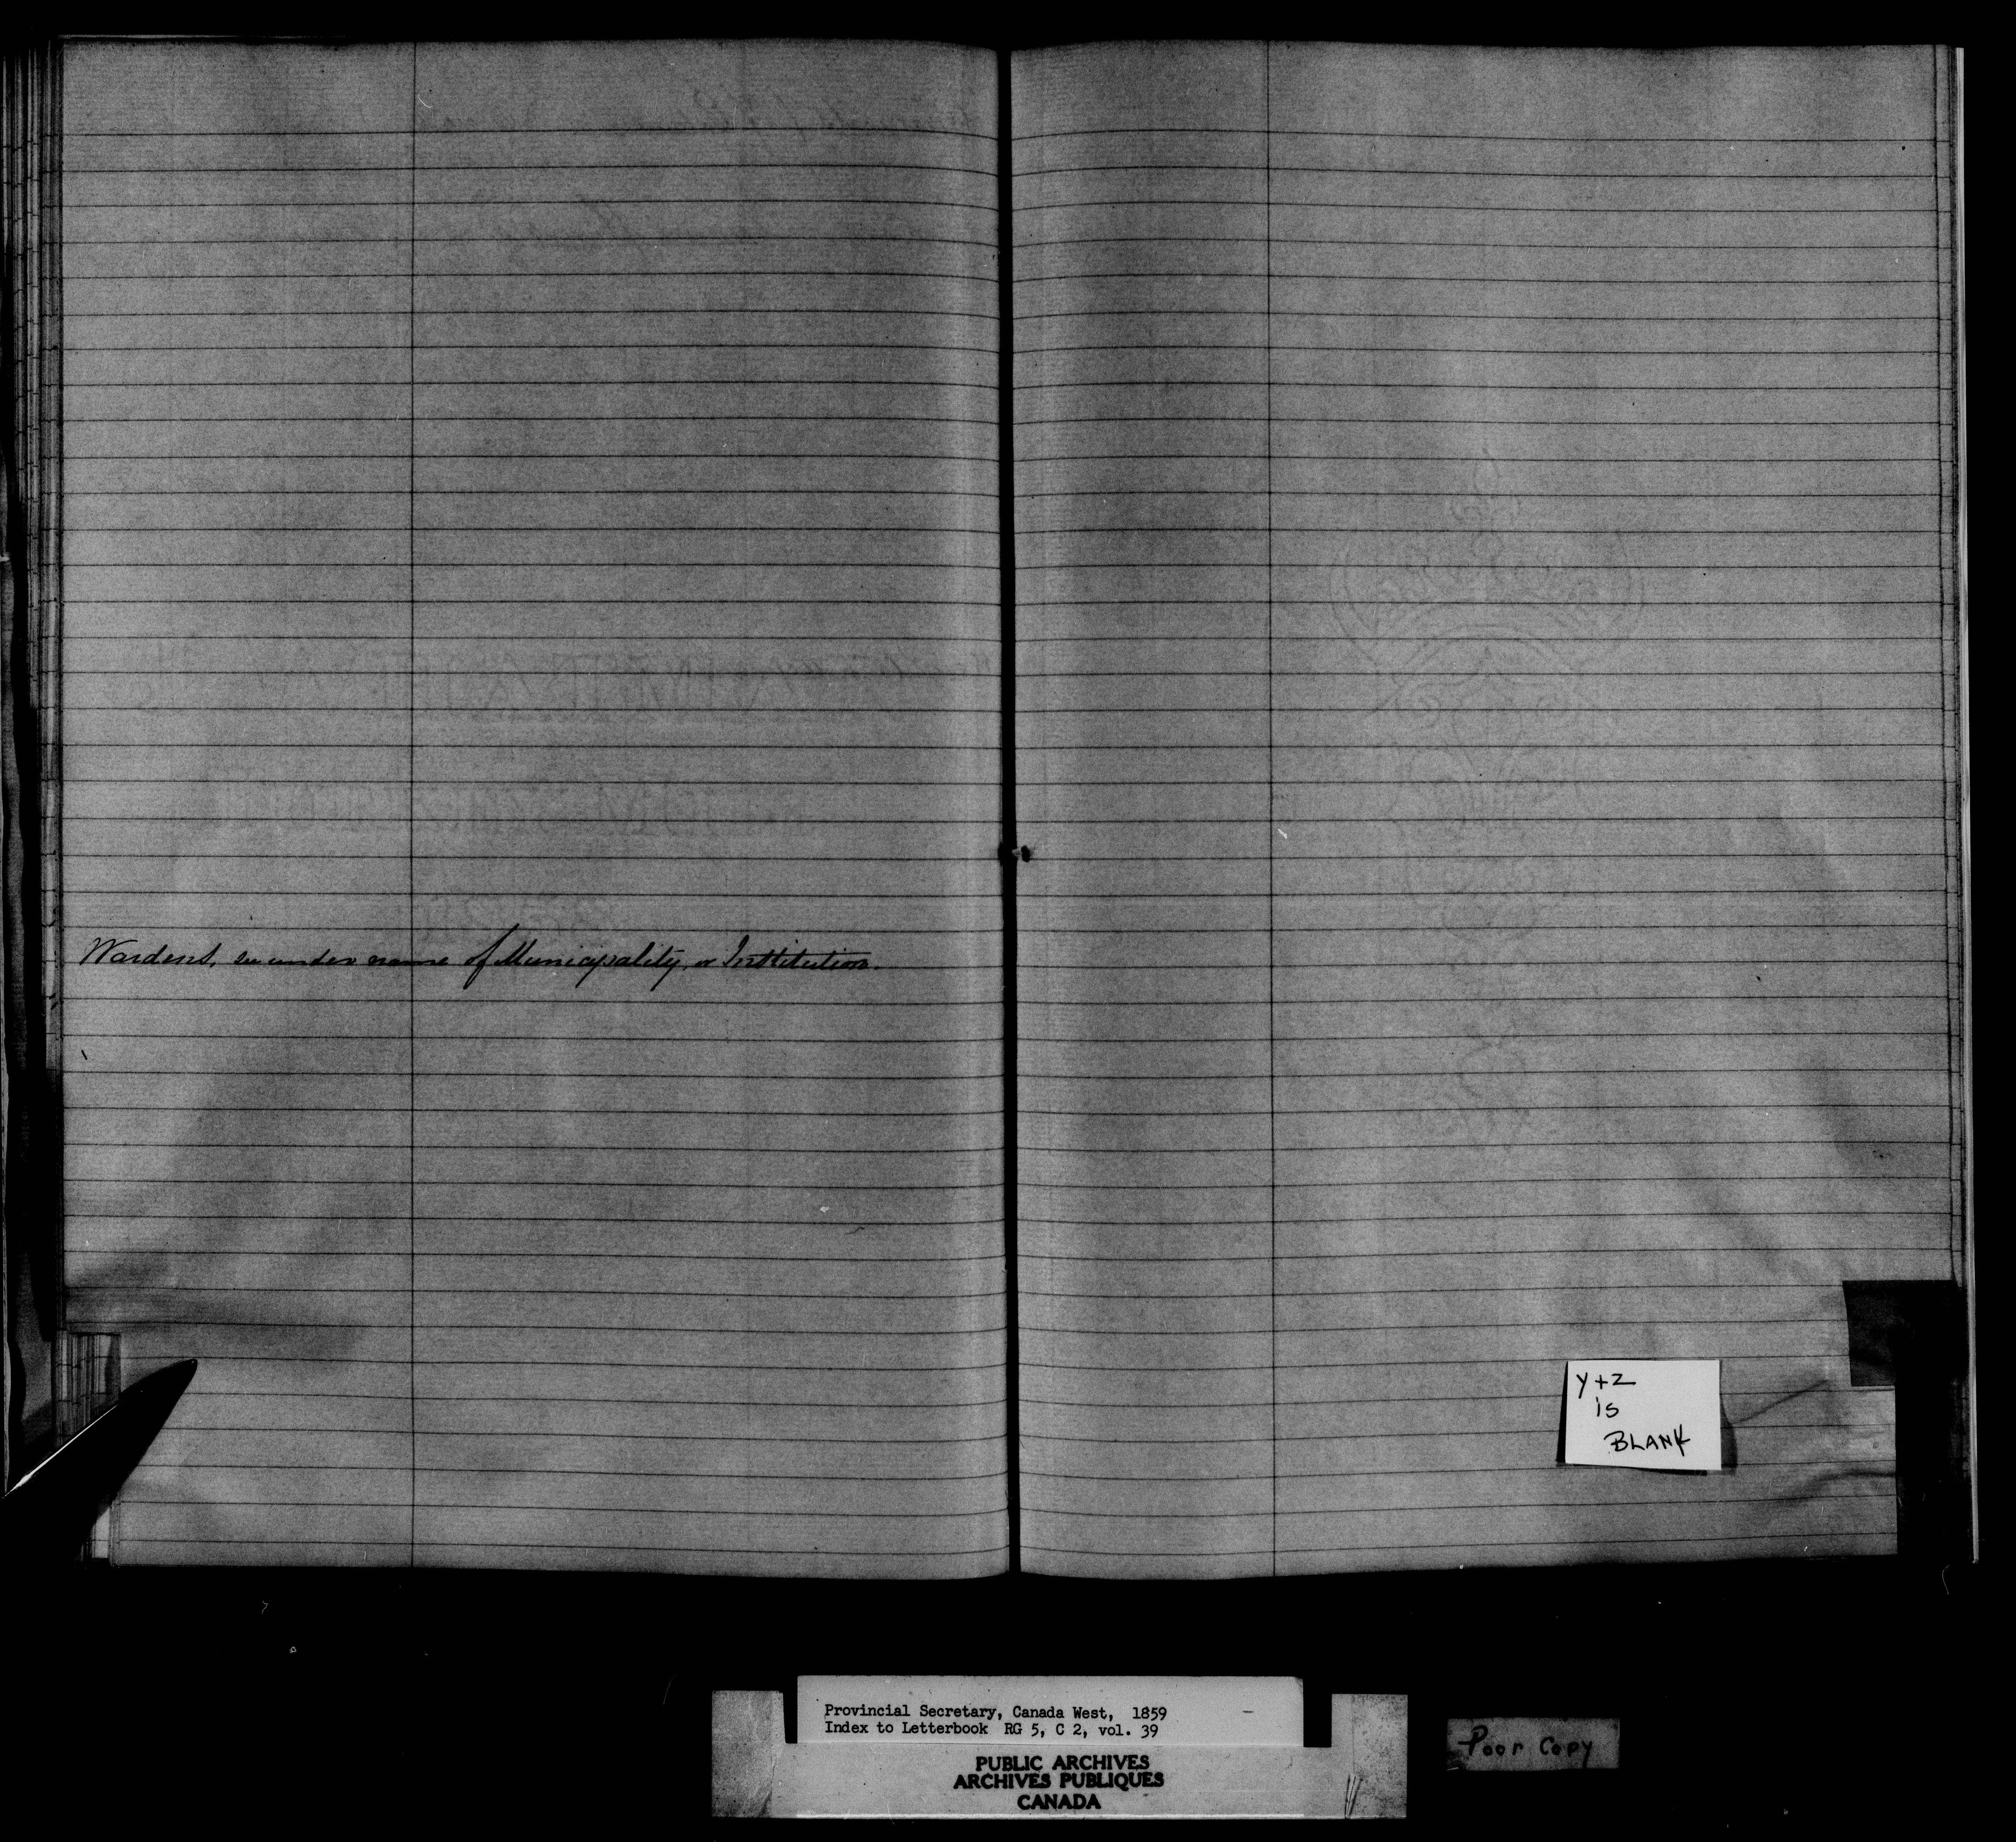 Wardens, see under name of Municipality, or Institution.
Y+Z
is
BLANK
Provincial Secretary, Canada West, 1859 -
Index to Letterbook RG 5, C 2, vol. 39
PUBLIC ARCHIVES
ARCHIVES PUBLIQUES
CANADA
Poor Copy